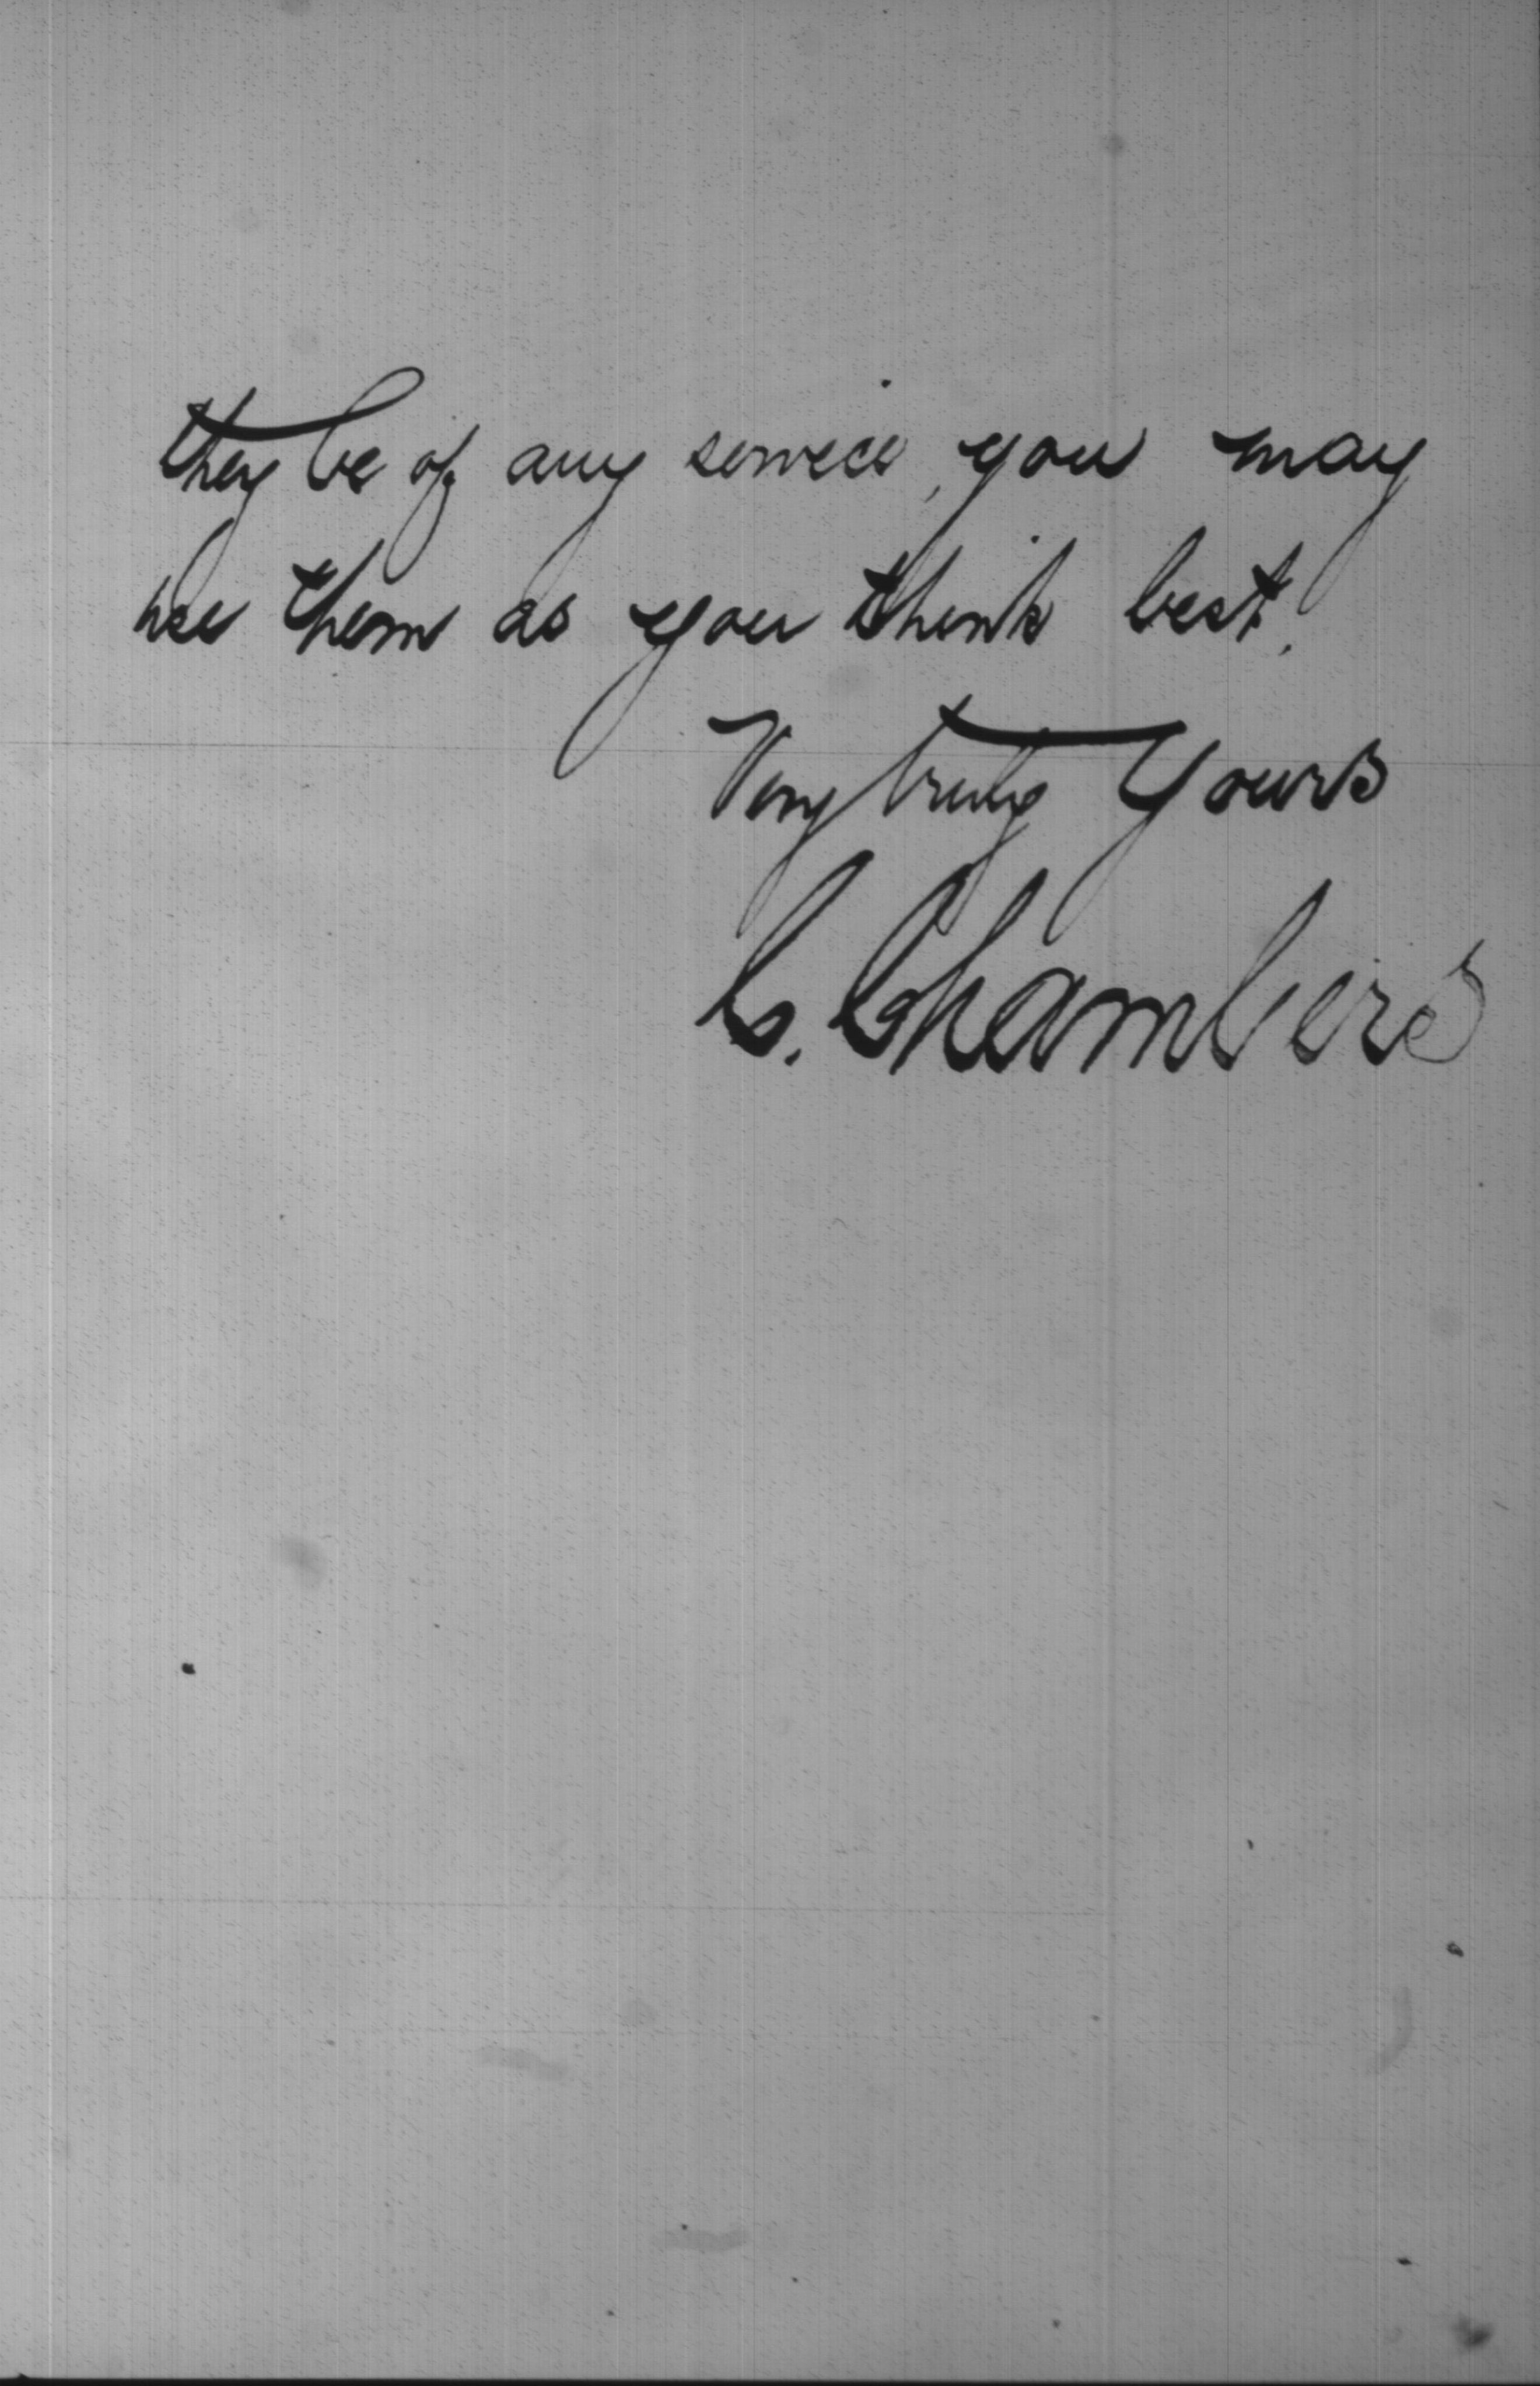 they be of any service, you may
use them as you think best.
Very truly Yours
C. Chambers